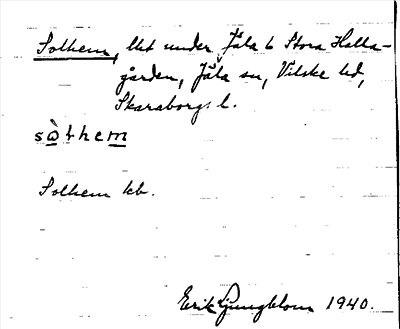 Solhem, lht under Jäla 6 Stora Halla-
gården, Jäla sn, Vilske hd,
Skaraborgs l.
sòłhem
Solhem kb.
Erik Ljungblom 1940.